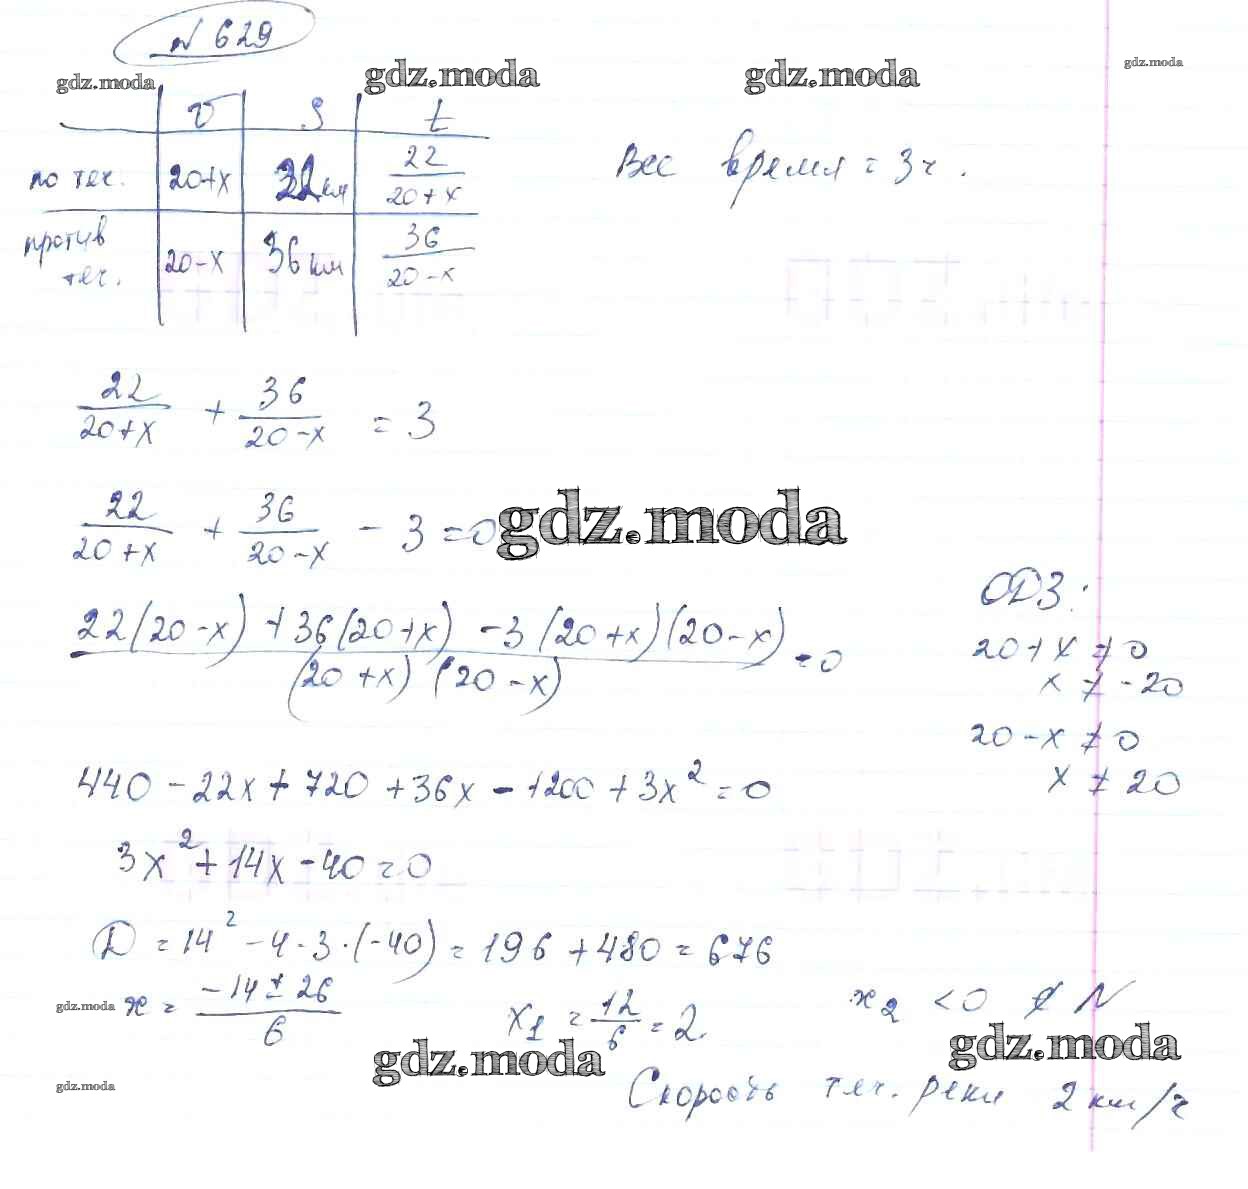 № 629
gdz.moda gdz.moda gdz.moda gdz.moda
v S t
по теч. 20+x 32 км 22/(20+x)
против теч. 20-x 36 км 36/(20-x)
Вес время = 3ч.
22/(20+x) + 36/(20-x) = 3
22/(20+x) + 36/(20-x) - 3 = 0
gdz.moda
(22(20-x) + 36(20+x) - 3(20+x)(20-x))/((20+x)(20-x)) = 0
ОДЗ:
20+x ≠ 0
x ≠ -20
20-x ≠ 0
x ≠ 20
440 - 22x + 720 + 36x - 1200 + 3x² = 0
3x² + 14x - 40 = 0
D = 14² - 4·3·(-40) = 196 + 480 = 676
gdz.moda x = (-14 ± 26)/6 x₁ = 12/6 = 2. x₂ < 0 ∉ N
gdz.moda gdz.moda
gdz.moda
Скорость теч. реки 2 км/ч